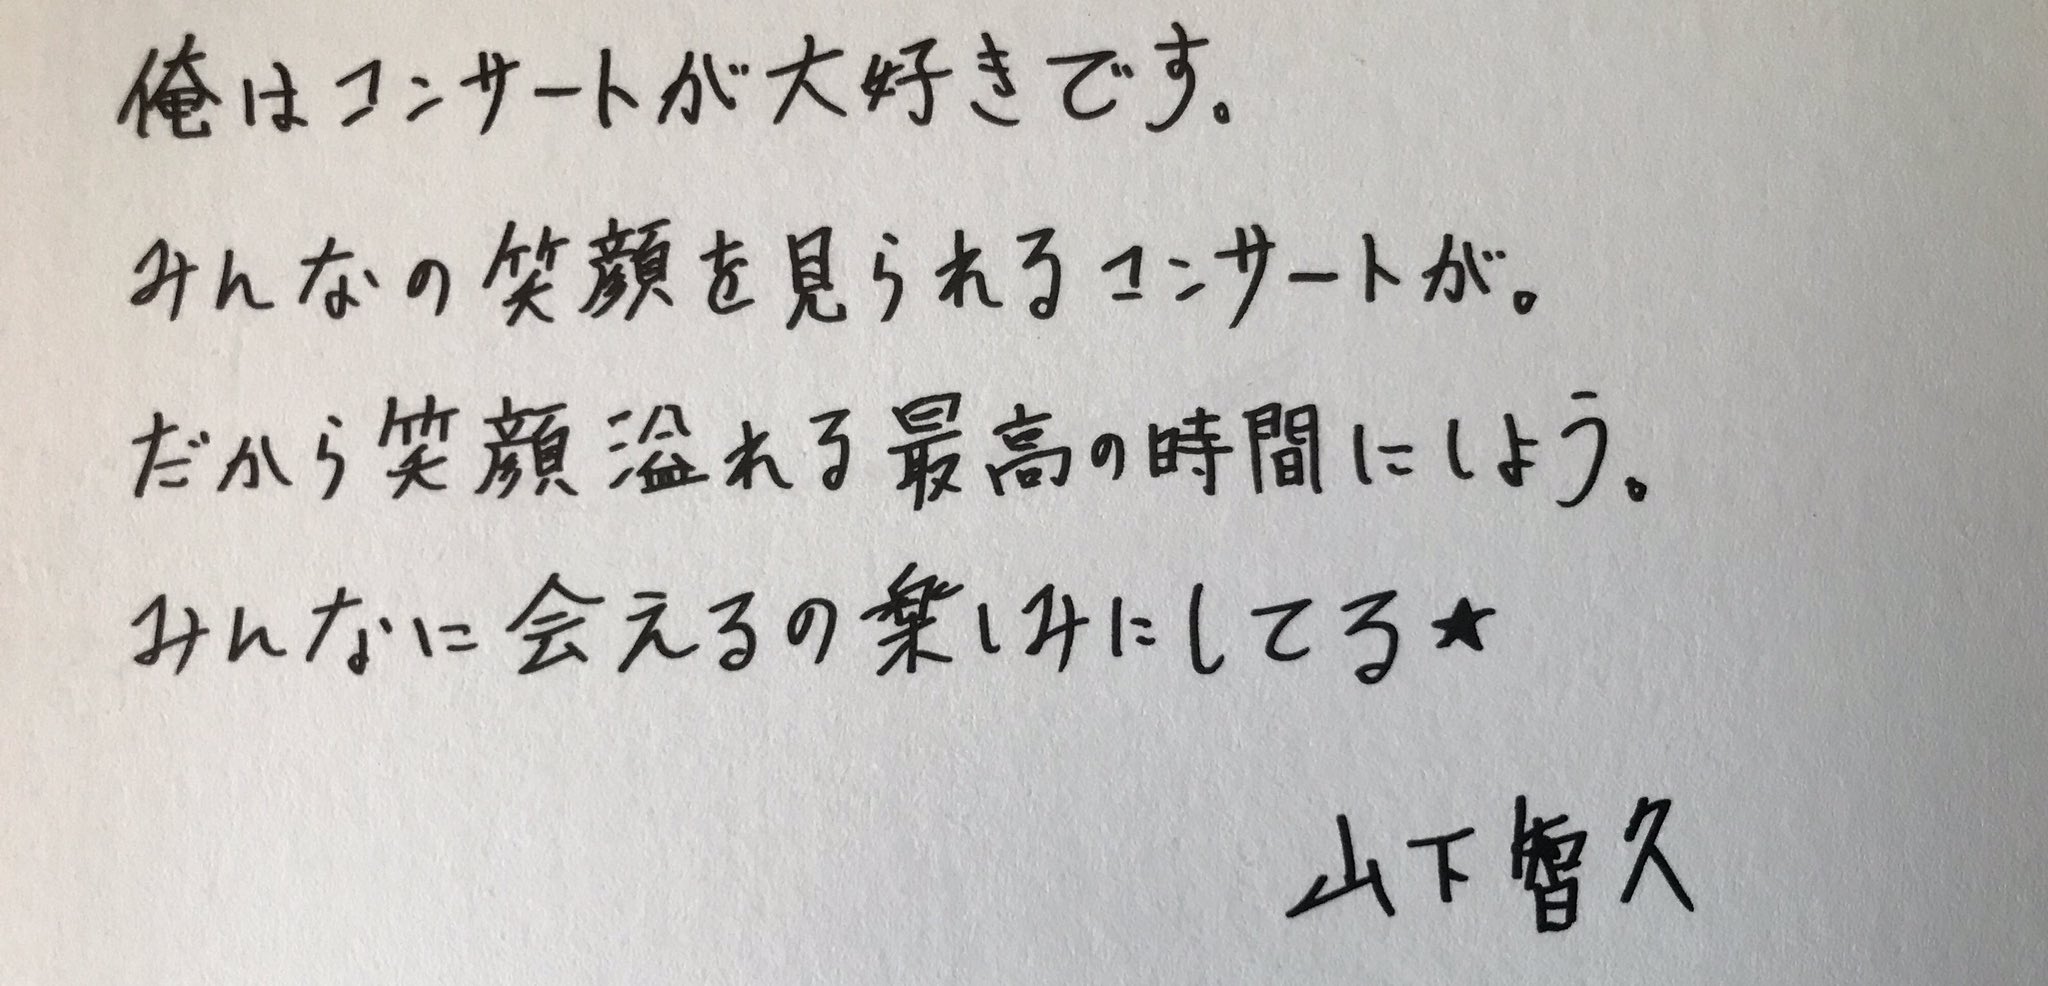 俺はコンサートが大好きです。
みんなの笑顔を見られるコンサートが。
だから笑顔溢れる最高の時間にしよう。
みんなに会えるの楽しみにしてる★
山下智久